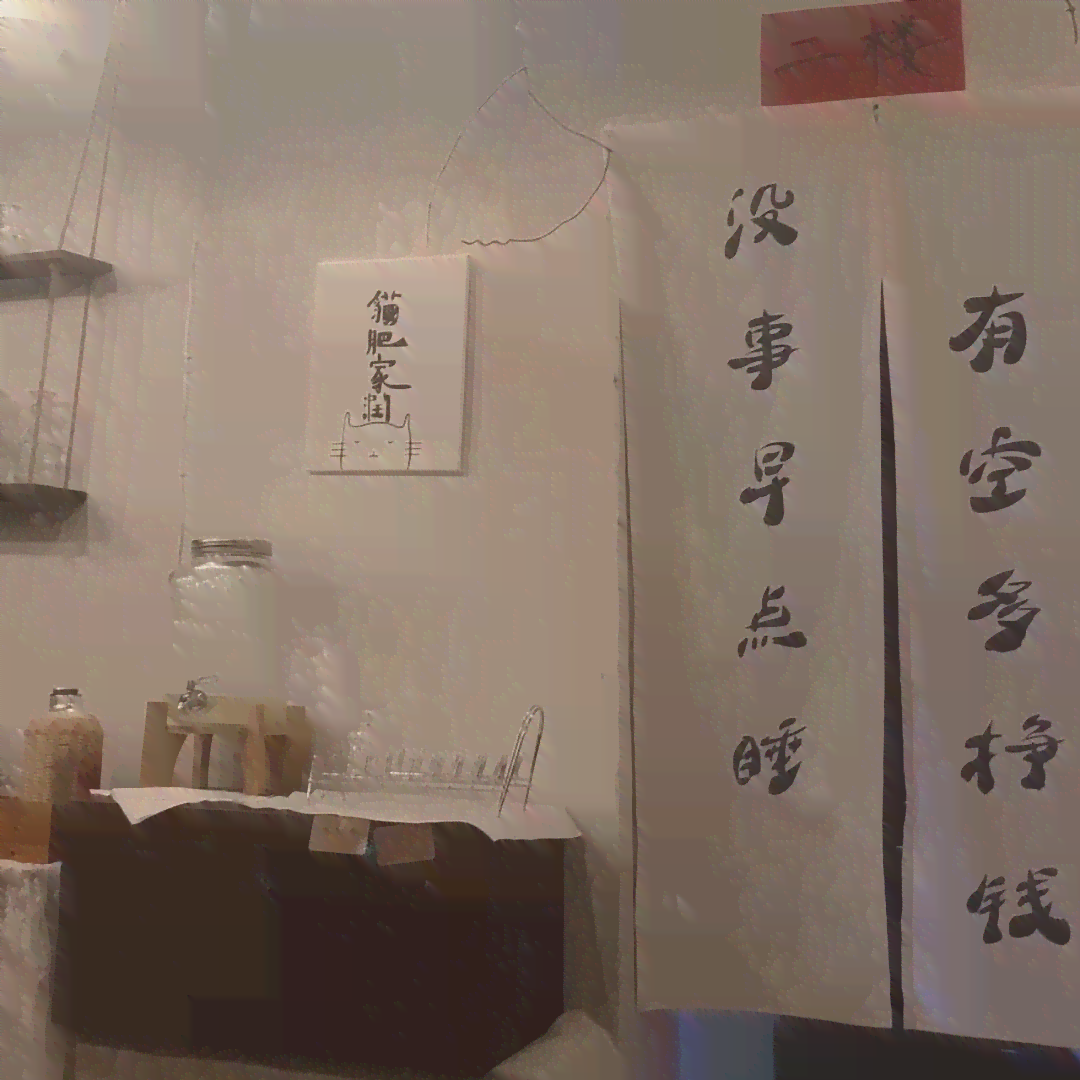 二楼
有空多挣钱
没事早点睡
貓肥家润